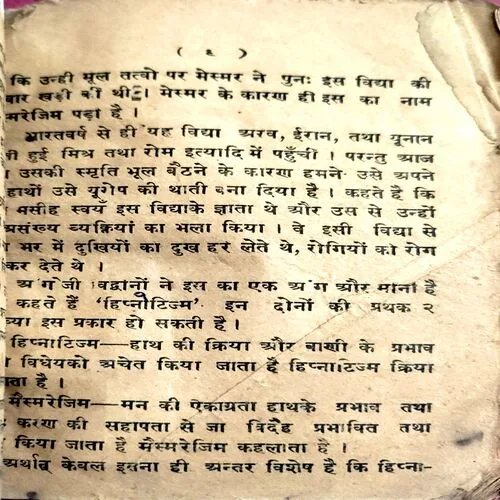 ( ६ )
कि उन्ही मूल तत्वो पर मेस्मर ने पुनः इस विद्या की
खड़ी की थी। मेस्मर के कारण ही इस का नाम
पड़ा है ।
भारतवर्ष से ही यह विद्या अरव, ईरान, तथा यूनान
हुई मिश्र तथा रोम इत्यादि में पहुँची । परन्तु आज
उसकी स्मृति भूल बैठने के कारण हमने उसे अपने
हाथों उसे यूरोप की थाती बना दिया है । कहते है कि
मसीह स्वयँ इस विद्याके ज्ञाता थे और उस से उन्हों
व्यक्रियां का भला किया । वे इसी विद्या से
भर में दुखियों का दुख हर लेते थे, रोगियों को रोग
कर देते थे ।
ने इस का एक अंग और माना है
कहते हैं 'हिप्नौटिज्म'. इन दोनों की प्रथक २
इस प्रकार हो सकती है ।
हिप्नाटिज्म—हाथ की क्रिया और वाणी के प्रभाव
विधेयको अचेत किया जाता है हिप्नाटिज्म क्रिया
है ।
मैस्मरेजिम—मन की ऐकाग्रता हाथके प्रभाव तथा
करण की सहापता से जा विदेह प्रभावित तथा
किया जाता है मैस्मरेजिम कहलाता है ।
अर्थात् केबल इतना ही अन्तर विशेष है कि हिप्ना-